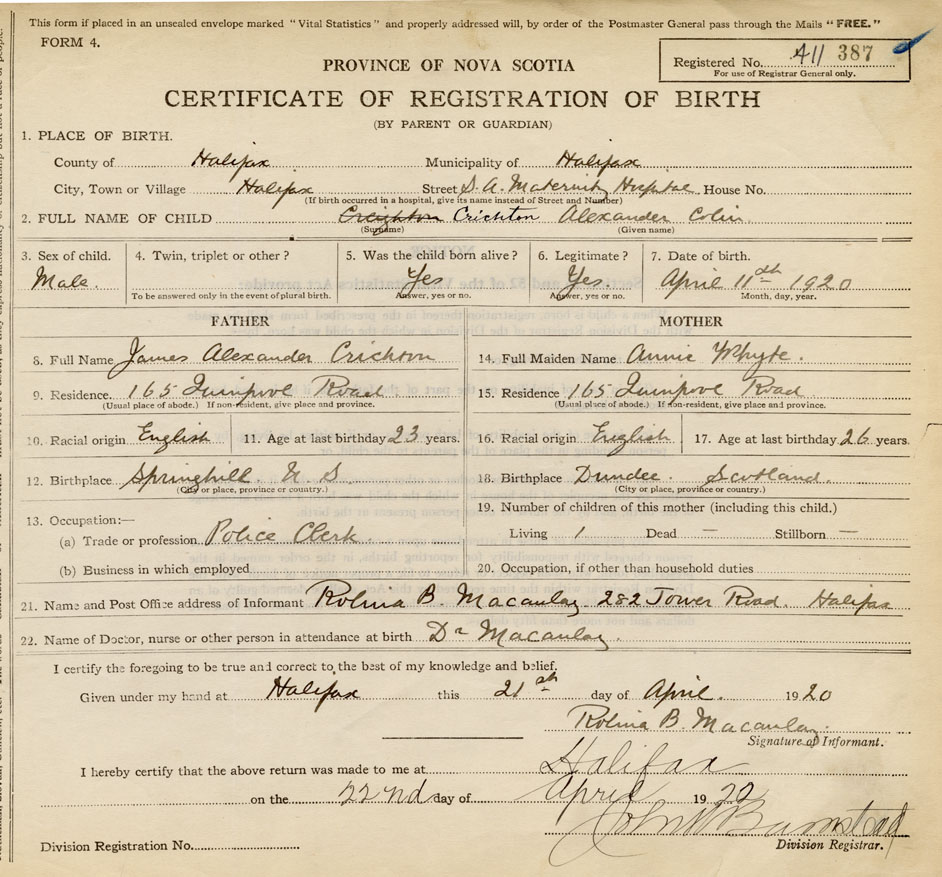 This form if placed in an unsealed envelope marked "Vital Statistics" and properly addressed will, by order of the Postmaster General pass through the Mails "FREE."
FORM 4.
Registered No. 411 387
For use of Registrar General only.
PROVINCE OF NOVA SCOTIA
CERTIFICATE OF REGISTRATION OF BIRTH
(BY PARENT OR GUARDIAN)
1. PLACE OF BIRTH.
County of Halifax Municipality of Halifax
City, Town or Village Halifax Street S. A. Maternity Hospital House No.
(If birth occurred in a hospital, give its name instead of Street and Number)
2. FULL NAME OF CHILD Creighton Crichton Alexander Colin
(Surname) (Given name)
3. Sex of child. 4. Twin, triplet or other? 5. Was the child born alive? 6. Legitimate? 7. Date of birth.
Male. Yes Yes. April 11th 1920
To be answered only in the event of plural birth. Answer, yes or no. Answer, yes or no. Month, day, year.
FATHER MOTHER
8. Full Name James Alexander Crichton 14. Full Maiden Name Annie Whyte.
9. Residence. 165 Quinpool Road 15. Residence 165 Quinpool Road
(Usual place of abode.) If non-resident, give place and province. (Usual place of abode.) If non-resident, give place and province.
10. Racial origin English 11. Age at last birthday 23 years. 16. Racial origin English 17. Age at last birthday 26 years.
12. Birthplace Springhill N S 18. Birthplace Dundee. Scotland.
(City or place, province or country.) (City or place, province or country.)
19. Number of children of this mother (including this child.)
13. Occupation:—
(a) Trade or profession Police Clerk. Living 1 Dead — Stillborn —
(b) Business in which employed 20. Occupation, if other than household duties
21. Name and Post Office address of Informant Rolina B. Macaulay 282 Tower Road. Halifax
22. Name of Doctor, nurse or other person in attendance at birth Dr Macaulay.
I certify the foregoing to be true and correct to the best of my knowledge and belief.
Given under my hand at Halifax this 21st day of April. 1920
Rolina B. Macaulay.
Signature of Informant.
I hereby certify that the above return was made to me at Halifax
on the 22nd day of April 1920
John Barnstead
Division Registrar.
Division Registration No.